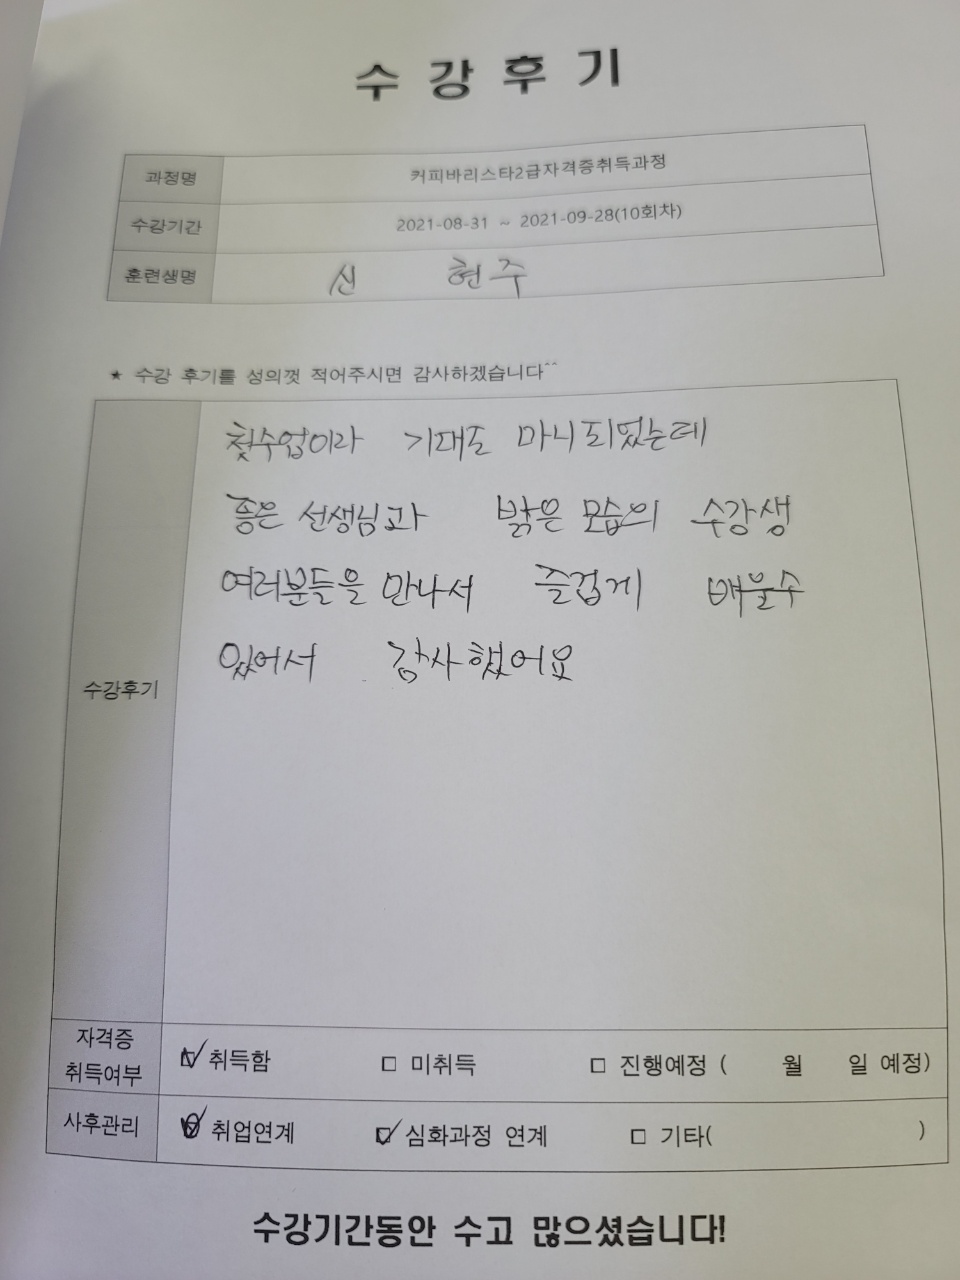 수강후기
과정명 커피바리스타2급자격증취득과정
수강기간 2021-08-31 ~ 2021-09-28(10회차)
훈련생명 신 현주
★ 수강 후기를 성의껏 적어주시면 감사하겠습니다^^
첫수업이라 기대도 마니되었는데
좋은 선생님과 밝은 모습의 수강생
여러분들을 만나서 즐겁게 배울수
있어서 감사했어요
수강후기
자격증 취득여부 ☑ 취득함 □ 미취득 □ 진행예정 ( 월 일 예정)
사후관리 ☑ 취업연계 ☑ 심화과정 연계 □ 기타( )
수강기간동안 수고 많으셨습니다!